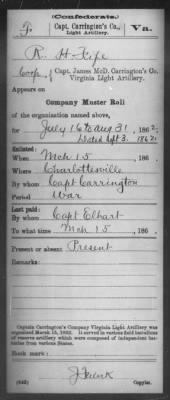 (Confederate.)
F. Capt. Carrington's Co., Light Artillery. Va.
R. H. Fife
Corp, Capt. James McD. Carrington's Co., Virginia Light Artillery.
Appears on
Company Muster Roll
of the organization named above,
for July 16 to Aug 31, 1862.
Dated Sept 3. 1862.
Enlisted:
When Mch 15, 186 .
Where Charlottesville
By whom Capt Carrington
Period War
Last paid:
By whom Capt Elhart
To what time Mch 15, 186 .
Present or absent Present
Remarks:
Captain Carrington's Company Virginia Light Artillery was
organized March 15, 1862. It served in various field battalions
of reserve artillery which were composed of independent bat-
teries from various States.
Book mark:
(642)
Copyist.